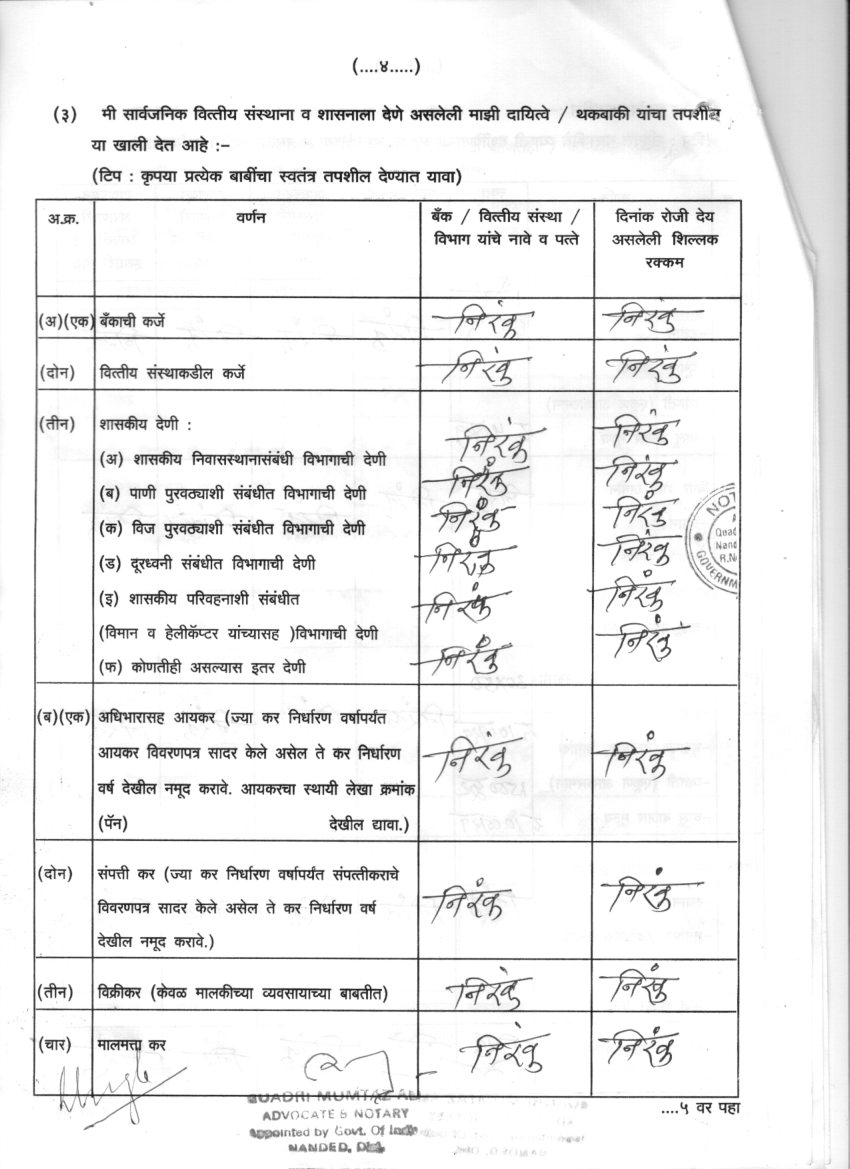 (....४.....)
(३) मी सार्वजनिक वित्तीय संस्थाना व शासनाला देणे असलेली माझी दायित्वे / थकबाकी यांचा तपशील
या खाली देत आहे :-
(टिप : कृपया प्रत्येक बाबींचा स्वतंत्र तपशील देण्यात यावा)
अ.क्र. वर्णन बँक / वित्तीय संस्था / दिनांक रोजी देय
विभाग यांचे नावे व पत्ते असलेली शिल्लक
रक्कम
(अ)(एक) बँकाची कर्जे निरंकु निरंकु
(दोन) वित्तीय संस्थाकडील कर्जे निरंकु निरंकु
(तीन) शासकीय देणी :
(अ) शासकीय निवासस्थानासंबंधी विभागाची देणी निरंकु निरंकु
(ब) पाणी पुरवठ्याशी संबंधीत विभागाची देणी निरंकु निरंकु
(क) विज पुरवठ्याशी संबंधीत विभागाची देणी निरंकु निरंकु
(ड) दूरध्वनी संबंधीत विभागाची देणी निरंकु निरंकु
(इ) शासकीय परिवहनाशी संबंधीत निरंकु निरंकु
(विमान व हेलीकॅप्टर यांच्यासह )विभागाची देणी
(फ) कोणतीही असल्यास इतर देणी निरंकु निरंकु
(ब)(एक) अधिभारासह आयकर (ज्या कर निर्धारण वर्षापर्यंत
आयकर विवरणपत्र सादर केले असेल ते कर निर्धारण निरंकु निरंकु
वर्ष देखील नमूद करावे. आयकरचा स्थायी लेखा क्रमांक
(पॅन) देखील द्यावा.)
(दोन) संपत्ती कर (ज्या कर निर्धारण वर्षापर्यंत संपत्तीकराचे
विवरणपत्र सादर केले असेल ते कर निर्धारण वर्ष निरंकु निरंकु
देखील नमूद करावे.)
(तीन) विक्रीकर (केवळ मालकीच्या व्यवसायाच्या बाबतीत) निरंकु निरंकु
(चार) मालमत्ता कर निरंकु निरंकु
QUADRI MUMTAZ AL
ADVOCATE & NOTARY
Appointed by Govt. Of India
NANDED, Dist.
....५ वर पहा